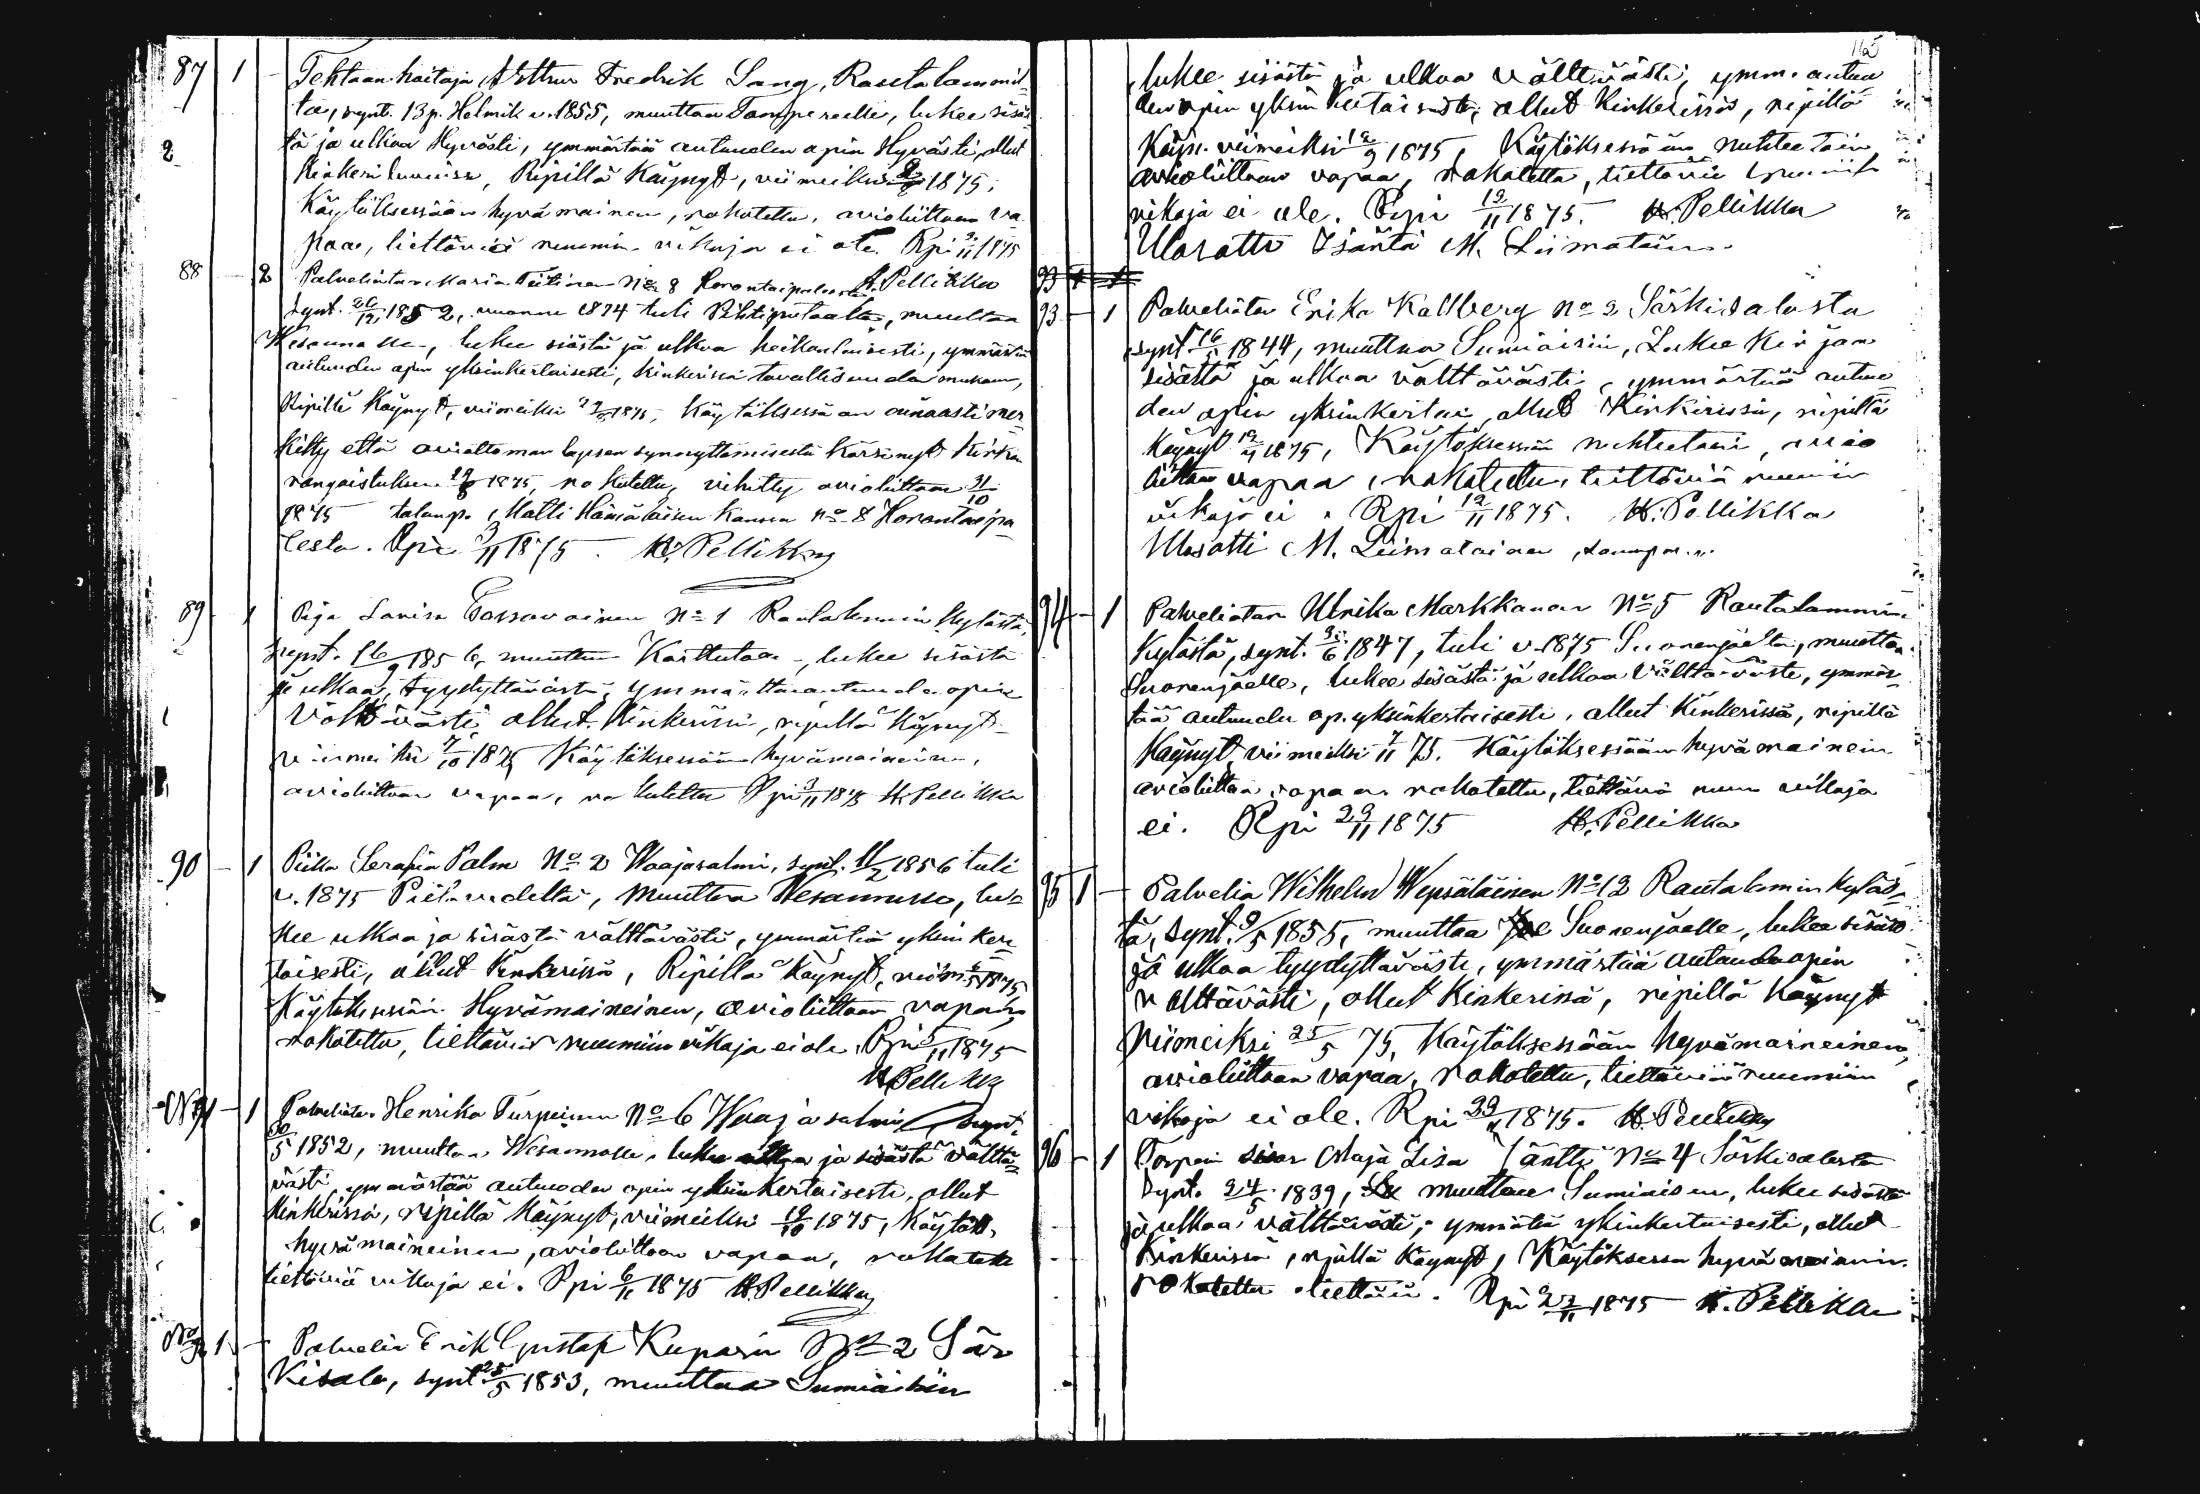 115
87 1 - Tehtaan hoitaja Arthur Fredrik Lang, Rautalammil-
ta, synt. 13 p. Helmik. v. 1855, muuttaa Tampereelle, lukee sisäs-
2 tä ja ulkoa Hyvästi, ymmärtää autuuden opin Hyvästi, ollut
Kinkeri luvuissa, Ripillä Käynyt, viimeiksi 1875,
Käytöksessään hyvämainen, rokotettu, avioliittoon va-
paa, tiettäviä ruumin vikoja ei ole. Rpi 1875
H. Pellikka
88 - 2 Palveliatar Maria No 8 Horontaipaleesta
synt. 1852, vuonna 1874 tuli Pihtiputaalta, muuttaa
Wesannolle, lukee sisästä ja ulkoa heikonlaisesti, ymmärtää
autuuden opin yksinkertaisesti, kinkerissä tavallisuuden mukaan,
Ripillä Käynyt, viimeiksi 1875, Käytöksessä on ainoasti mer-
kitty että aviottoman lapsen synnyttämisestä kärsinyt kirkon
rangaistuksen 1875, rokotettu, vihitty avioliittoon 31/10
1875 talonp. Matti Hämäläisen kanssa No 8 Horontaipa-
leesta. Rpi 3/11 1875. H. Pellikka
89 - 1 Piga Lovisa Tossavainen No 1 Rautalammin Kylästä,
synt. 16/9 1856, muuttaa Karttulaan, lukee sisästä
ja ulkoa, tyydyttävästi, ymmärtää autuuden opin
Välttävästi, ollut Kinkerissä, ripillä Käynyt
viimeiksi 7/10 1875 Käytöksessään hyvämaineinen,
avioliittoon vapaa, rokotettu Rpi 3/11 1875 H. Pellikka
90 - 1 Piika Serafia Palm No 2 Waajasalmi, synt. 11/2 1856 tuli
v. 1875 Pielavedeltä, muuttaa Wesannolle, lu-
kee ulkoa ja sisästä välttävästi, ymmärtää yksinker-
taisesti, ollut Kinkerissä, Ripillä Käynyt, viim. 1875
Käytöksessään Hyvämaineinen, avioliittoon vapaa,
rokotettu, tiettäviä ruumiin vikoja ei ole. Rpi 5/11 1875
H. Pellikka
No 91 - 1 Palveliatar Henrika Turpeinen No 6 Waajasalmi, synt.
30/5 1852, muuttaa Wesannolle, lukee ulkoa ja sisästä välttä-
västi, ymmärtää autuuden opin yksinkertaisesti, ollut
Kinkerissä, ripillä Käynyt, viimeiksi 19/10 1875, Käytök.
hyvämaineinen, avioliittoon vapaa, rokotettu
tiettäviä vikoja ei. Rpi 6/11 1875 H. Pellikka
No 92 1 - Palvelia Erik Gustaf Kuparin No 2 Sär-
kisalo, synt. 25/5 1853, muuttaa Sumiaisiin
lukee sisästä ja ulkoa välttävästi, ymm. autuu-
den opin yksinkertaisesti, ollut Kinkerissä, ripillä
Käyn. viimeiksi 12/9 1875, Käytöksessään nuhteetoin
avioliittoon vapaa, rokotettu, tiettäviä ruumin
vikoja ei ole. Rpi 12/11 1875. H. Pellikka
Ulosotti Isäntä M. Liimatainen.
93 1
93 - 1 Palveliatar Erika Kallberg No 2 Särkisalosta
synt. 16/5 1844, muuttaa Sumiaisiin, Lukee Kirjaa
sisältä ja ulkoa välttävästi, ymmärtää autuu-
den opin yksinkertai, ollut Kinkerissä, ripillä
Käynyt 1875, Käytöksessään nuhteetoin, avio
liittoon vapaa, rokotettu, tiettäviä ruumin
vikoja ei. Rpi 12/11 1875. H. Pellikka
Ulosotti M. Liimatainen,
94 - 1 Palveliatar Ulrika Markkanen No 5 Rautalammin
Kylästä, synt. 1847, tuli v. 1875 Suonenjoelta, muuttaa
Suonenjoelle, lukee sisästä ja ulkoa Välttävästi, ymmär-
tää autuuden op. yksinkertaisesti, ollut Kinkerissä, ripillä
Käynyt, viimeiksi 7/11 75. Käytöksessään hyvämainein
avioliittoon vapaa rokotettu, tiettäviä ruum vikoja
ei. Rpi 22/11 1875 H. Pellikka
95 1 - Palvelia Wilhelm Wepsäläinen No 12 Rautalamin Kyläs-
tä, synt. 9/5 1855, muuttaa Suonenjoelle, lukee sisästä
ja ulkoa tyydyttävästi, ymmärtää autuuden opin
välttävästi, ollut Kinkerissä, ripillä Käynyt
Viimeiksi 25/5 75, Käytöksessään hyvämaineinen,
avioliittoon vapaa, rokotettu, tiettäviä ruumiin
vikoja ei ole. Rpi 22/11 1875. H. Pellikka
96 - 1 Torpari sisar Maja Lisa Jäntti No 4 Särkisalosta
synt. 24/5 1839, muuttaa Sumiaisiin, lukee sisästä
ja ulkoa välttävästi, ymmärtä yksinkertaisesti, ollut
Kinkerissä, ripillä Käynyt, Käytöksessä hyvä mainein.
rokotettu tiettäviä. Rpi 22/11 1875 H. Pellikka